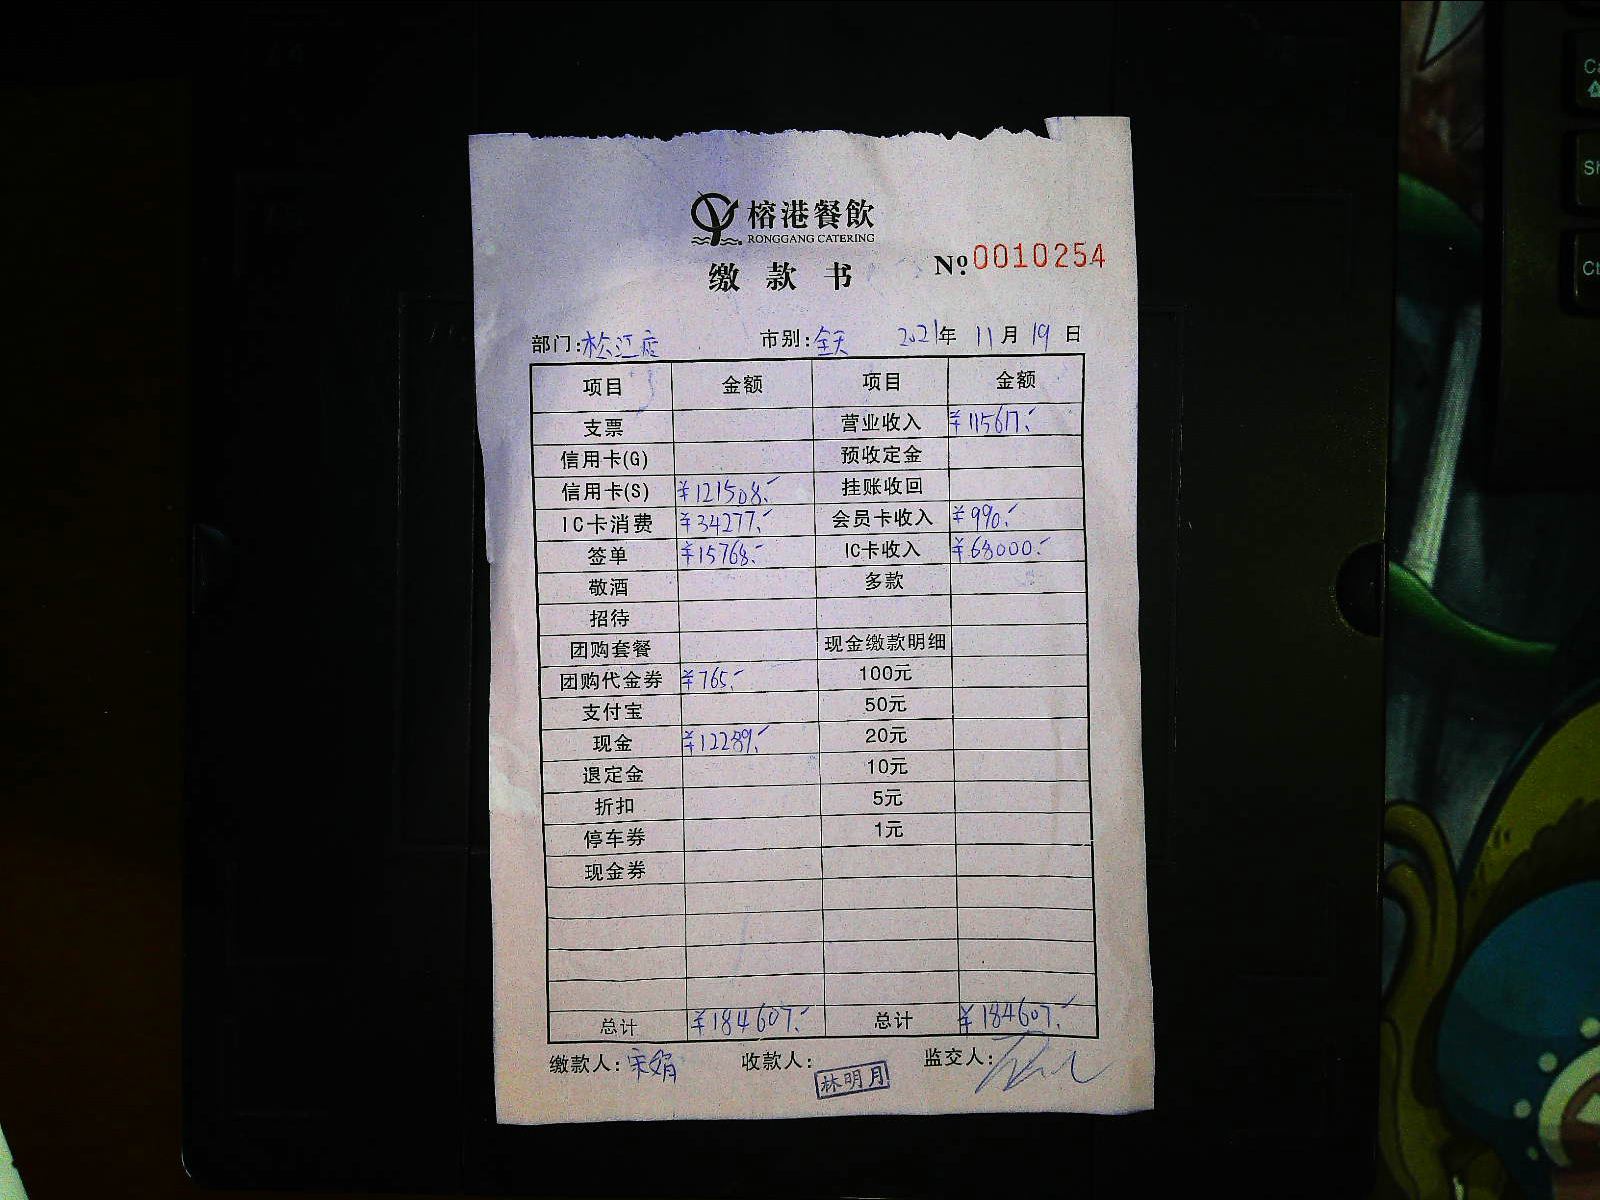 榕港餐飲
RONGGANG CATERING
缴款书 Nº 0010254
部门:松江店 市别:全天 2021年 11月 19日
项目 金额 项目 金额
支票 营业收入 ¥115617.-
信用卡(G) 预收定金
信用卡(S) ¥121508.- 挂账收回
IC卡消费 ¥34277.- 会员卡收入 ¥990.-
签单 ¥15768.- IC卡收入 ¥68000.-
敬酒 多款
招待
团购套餐 现金缴款明细
团购代金券 ¥765.- 100元
支付宝 50元
现金 ¥12289.- 20元
退定金 10元
折扣 5元
停车券 1元
现金券
总计 ¥184607.- 总计 ¥184607.-
缴款人:宋娟 收款人:林明月 监交人: